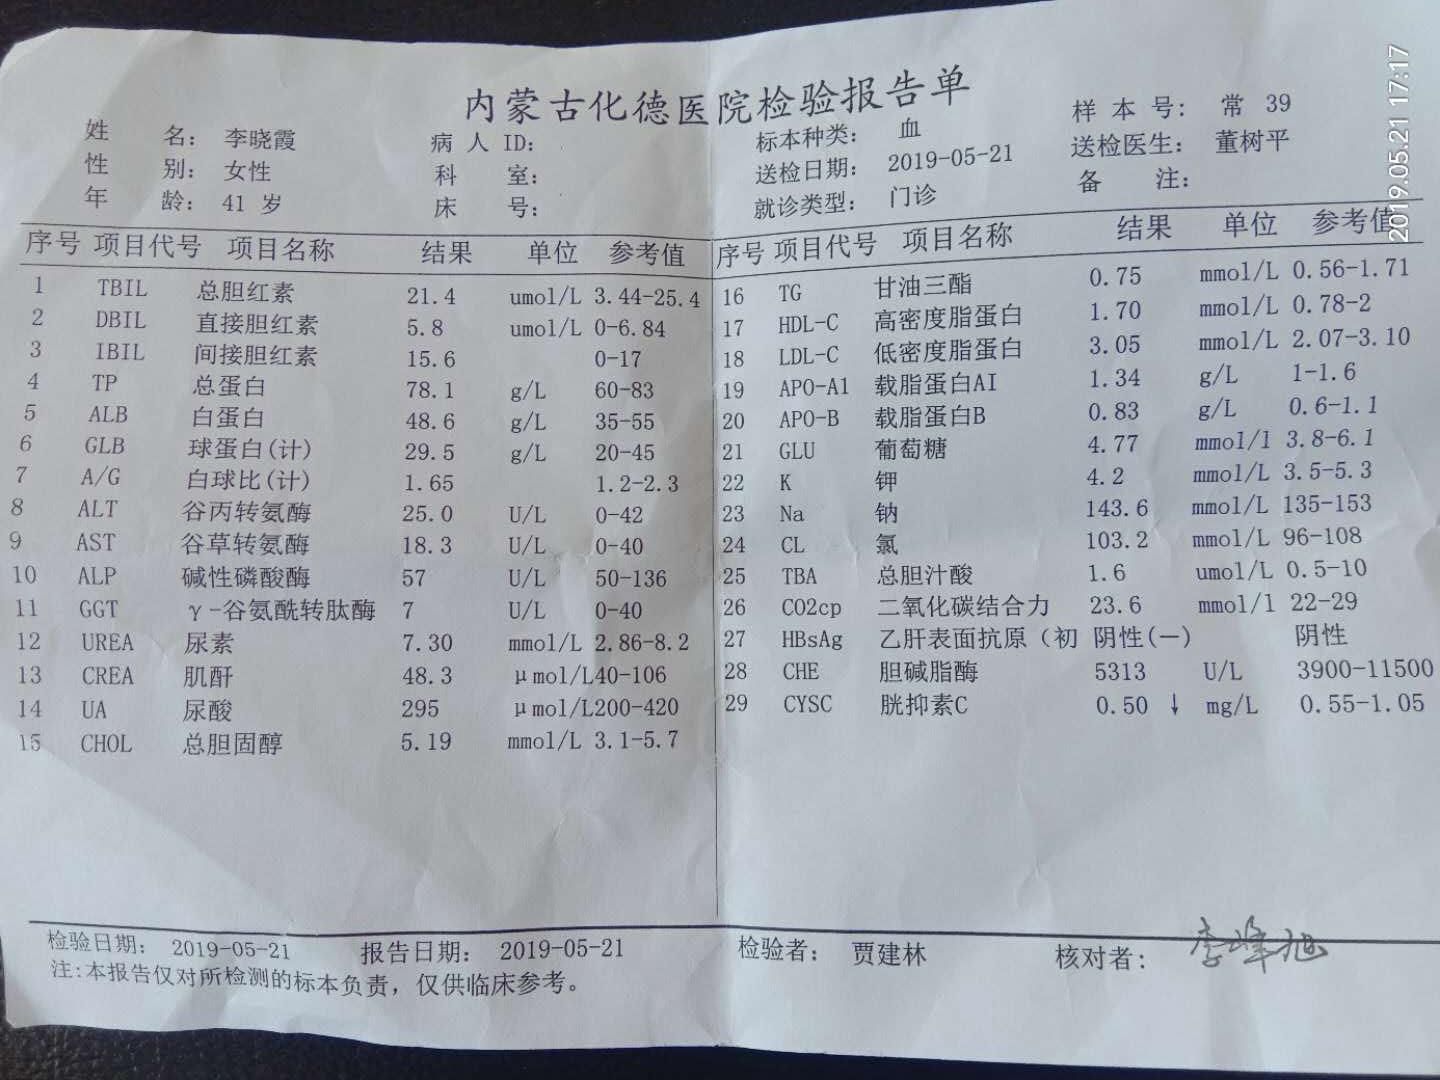 内蒙古化德医院检验报告单
姓 名: 李晓霞 病 人 ID: 标本种类: 血 样 本 号: 常 39
性 别: 女性 科 室: 送检日期: 2019-05-21 送检医生: 董树平
年 龄: 41 岁 床 号: 就诊类型: 门诊 备 注:
序号 项目代号 项目名称 结果 单位 参考值 序号 项目代号 项目名称 结果 单位 参考值
1 TBIL 总胆红素 21.4 umol/L 3.44-25.4 16 TG 甘油三酯 0.75 mmol/L 0.56-1.71
2 DBIL 直接胆红素 5.8 umol/L 0-6.84 17 HDL-C 高密度脂蛋白 1.70 mmol/L 0.78-2
3 IBIL 间接胆红素 15.6 0-17 18 LDL-C 低密度脂蛋白 3.05 mmol/L 2.07-3.10
4 TP 总蛋白 78.1 g/L 60-83 19 APO-A1 载脂蛋白AI 1.34 g/L 1-1.6
5 ALB 白蛋白 48.6 g/L 35-55 20 APO-B 载脂蛋白B 0.83 g/L 0.6-1.1
6 GLB 球蛋白(计) 29.5 g/L 20-45 21 GLU 葡萄糖 4.77 mmol/l 3.8-6.1
7 A/G 白球比(计) 1.65 1.2-2.3 22 K 钾 4.2 mmol/L 3.5-5.3
8 ALT 谷丙转氨酶 25.0 U/L 0-42 23 Na 钠 143.6 mmol/L 135-153
9 AST 谷草转氨酶 18.3 U/L 0-40 24 CL 氯 103.2 mmol/L 96-108
10 ALP 碱性磷酸酶 57 U/L 50-136 25 TBA 总胆汁酸 1.6 umol/L 0.5-10
11 GGT γ-谷氨酰转肽酶 7 U/L 0-40 26 CO2cp 二氧化碳结合力 23.6 mmol/l 22-29
12 UREA 尿素 7.30 mmol/L 2.86-8.2 27 HBsAg 乙肝表面抗原（初 阴性(一) 阴性
13 CREA 肌酐 48.3 μmol/L 40-106 28 CHE 胆碱脂酶 5313 U/L 3900-11500
14 UA 尿酸 295 μmol/L 200-420 29 CYSC 胱抑素C 0.50 ↓ mg/L 0.55-1.05
15 CHOL 总胆固醇 5.19 mmol/L 3.1-5.7
检验日期: 2019-05-21 报告日期: 2019-05-21 检验者: 贾建林 核对者: 李峰旭
注:本报告仅对所检测的标本负责，仅供临床参考。
2019.05.21 17:17